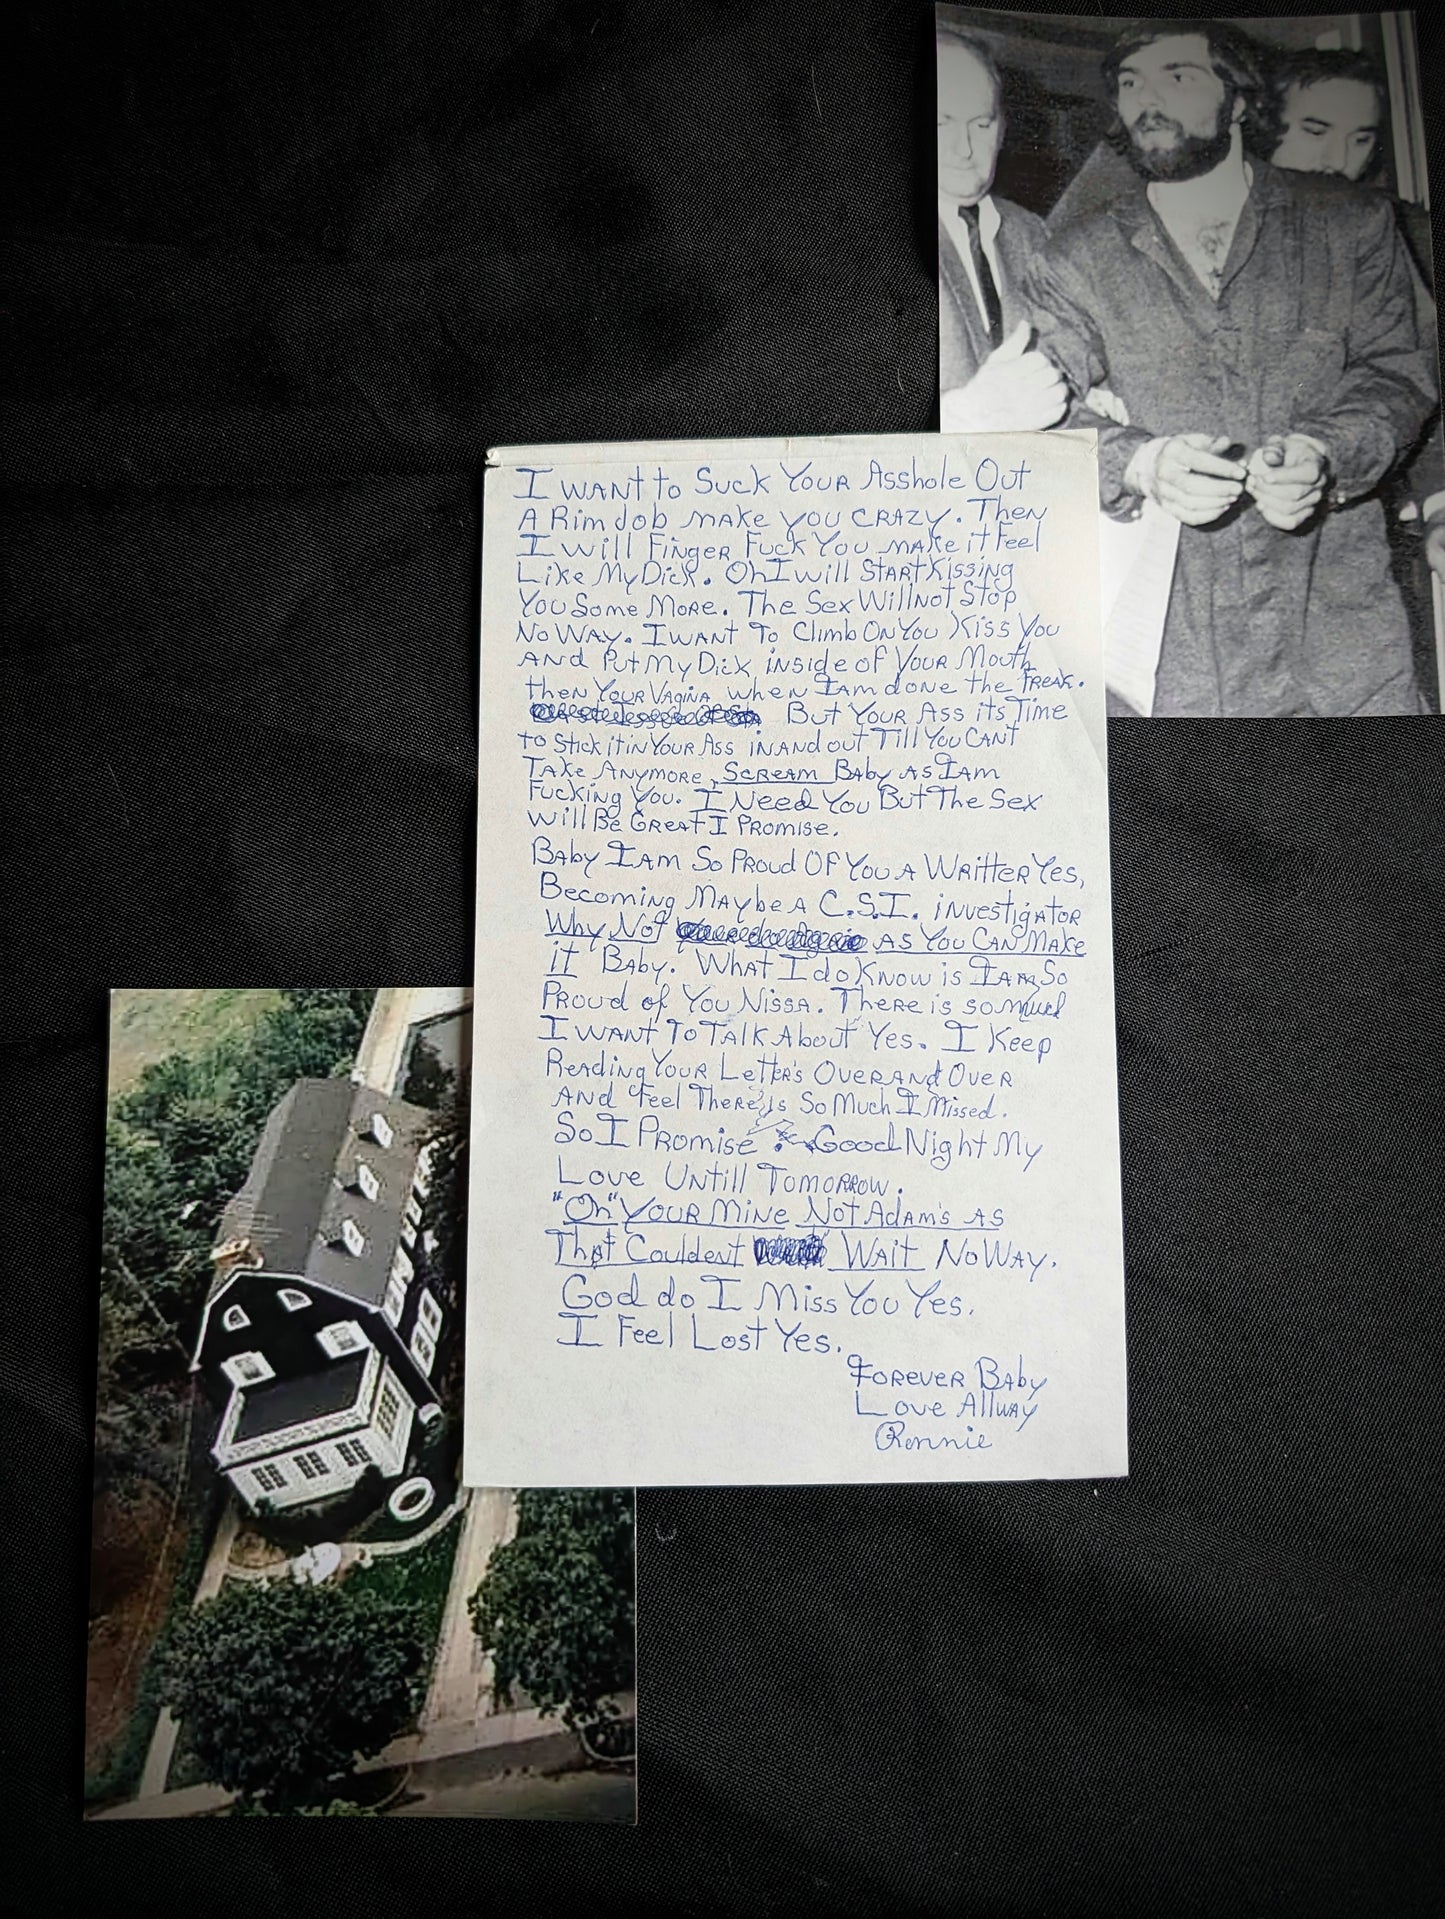 I WANT to Suck YOUR Asshole Out
A Rim Job MAKE YOU CRAZY. Then
I will Finger Fuck You MAKE it Feel
Like My Dick. Oh I will START Kissing
You Some More. The Sex Will Not Stop
No Way. I WANT To Climb On You Kiss You
AND Put My Dick inside of Your Mouth
then Your Vagina when I am done the FREAK.
But Your Ass its Time
to Stick it in Your Ass in and out Till You Cant
Take Anymore, SCREAM Baby As I Am
Fucking You. I Need You But The Sex
Will Be Great I Promise.
Baby I am So Proud Of You A Writter Yes,
Becoming Maybe A C.S.I. investigator
Why Not As You Can Make
it Baby. What I do Know is I Am So
Proud of You Nissa. There is so much
I want To Talk About Yes. I Keep
Reading Your Letter's Over and Over
And Feel There is So Much I Missed.
So I Promise. Good Night My
Love Untill Tomorrow.
"Oh" Your Mine Not Adam's As
That Couldent Wait No Way.
God do I Miss You Yes.
I Feel Lost Yes.
Forever Baby
Love Allway
Ronnie